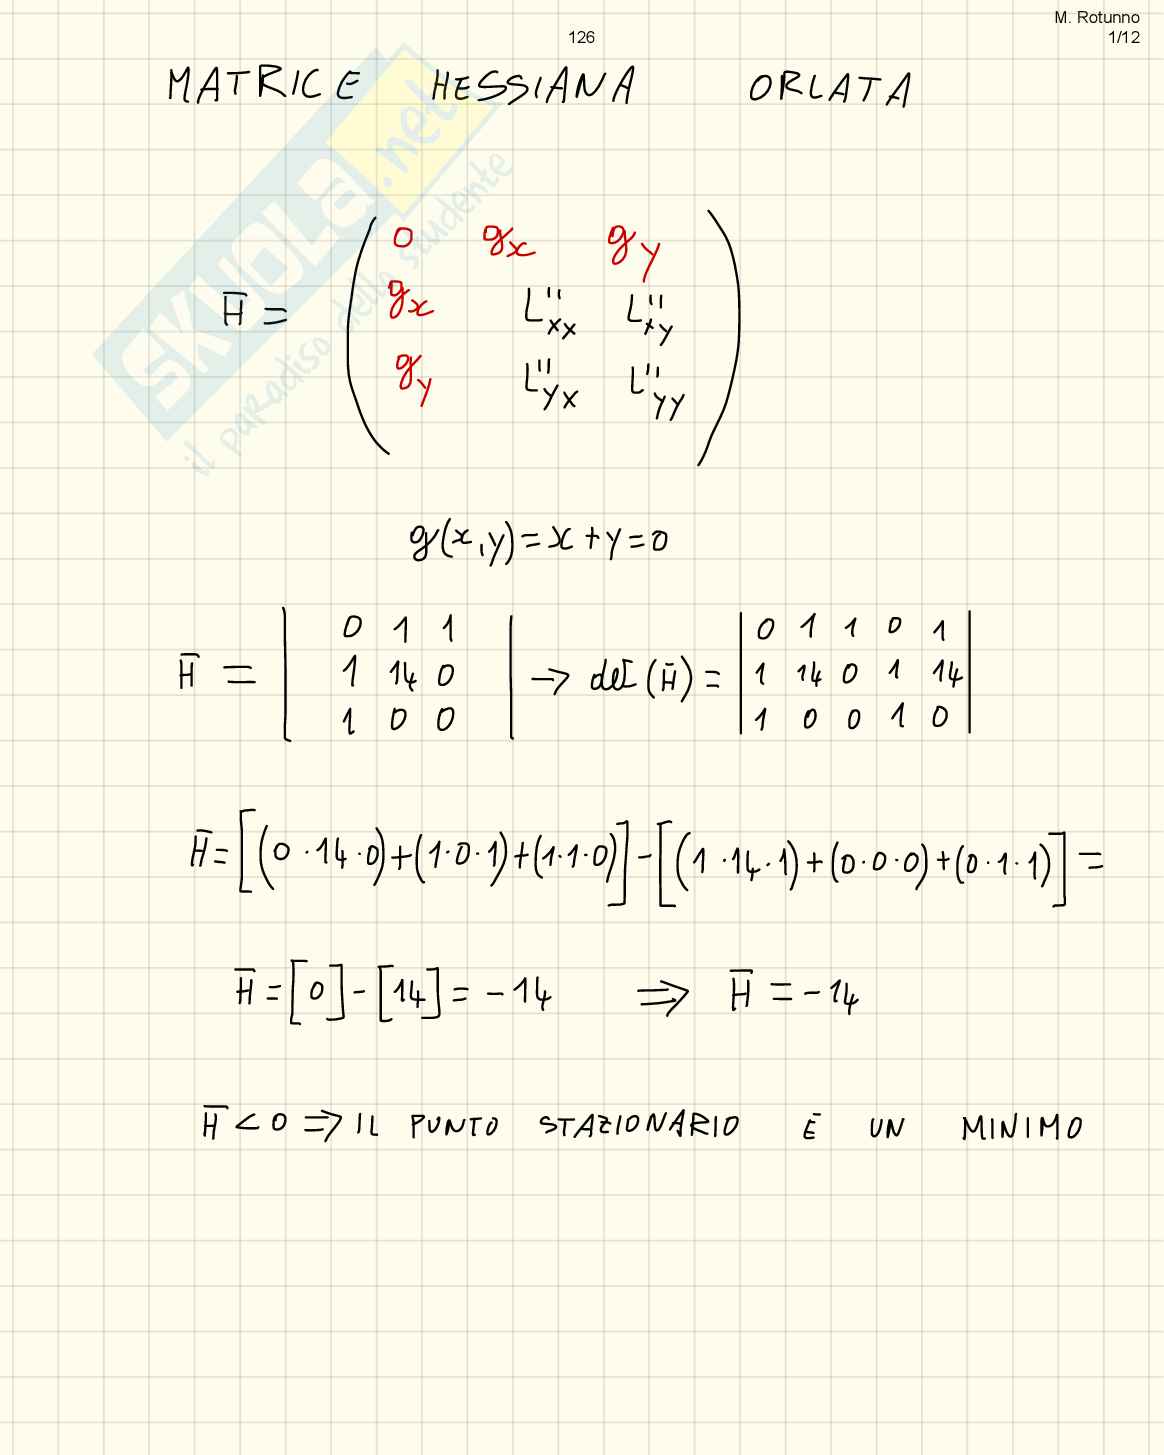 M. Rotunno
126
1/12
MATRICE HESSIANA ORLATA
SKUOLA.net
il paradiso dello studente
0 gx gy
H̅ = gx L''xx L''xy
gy L''yx L''yy
g(x,y)=x+y=0
0 1 1 0 1 1 0 1
H̅ = 1 14 0 → det(H̅) = 1 14 0 1 14
1 0 0 1 0 0 1 0
H̅=[(0·14·0)+(1·0·1)+(1·1·0)]-[(1·14·1)+(0·0·0)+(0·1·1)]=
H̅=[0]-[14]=-14 ⇒ H̅=-14
H̅<0⇒IL PUNTO STAZIONARIO E UN MINIMO